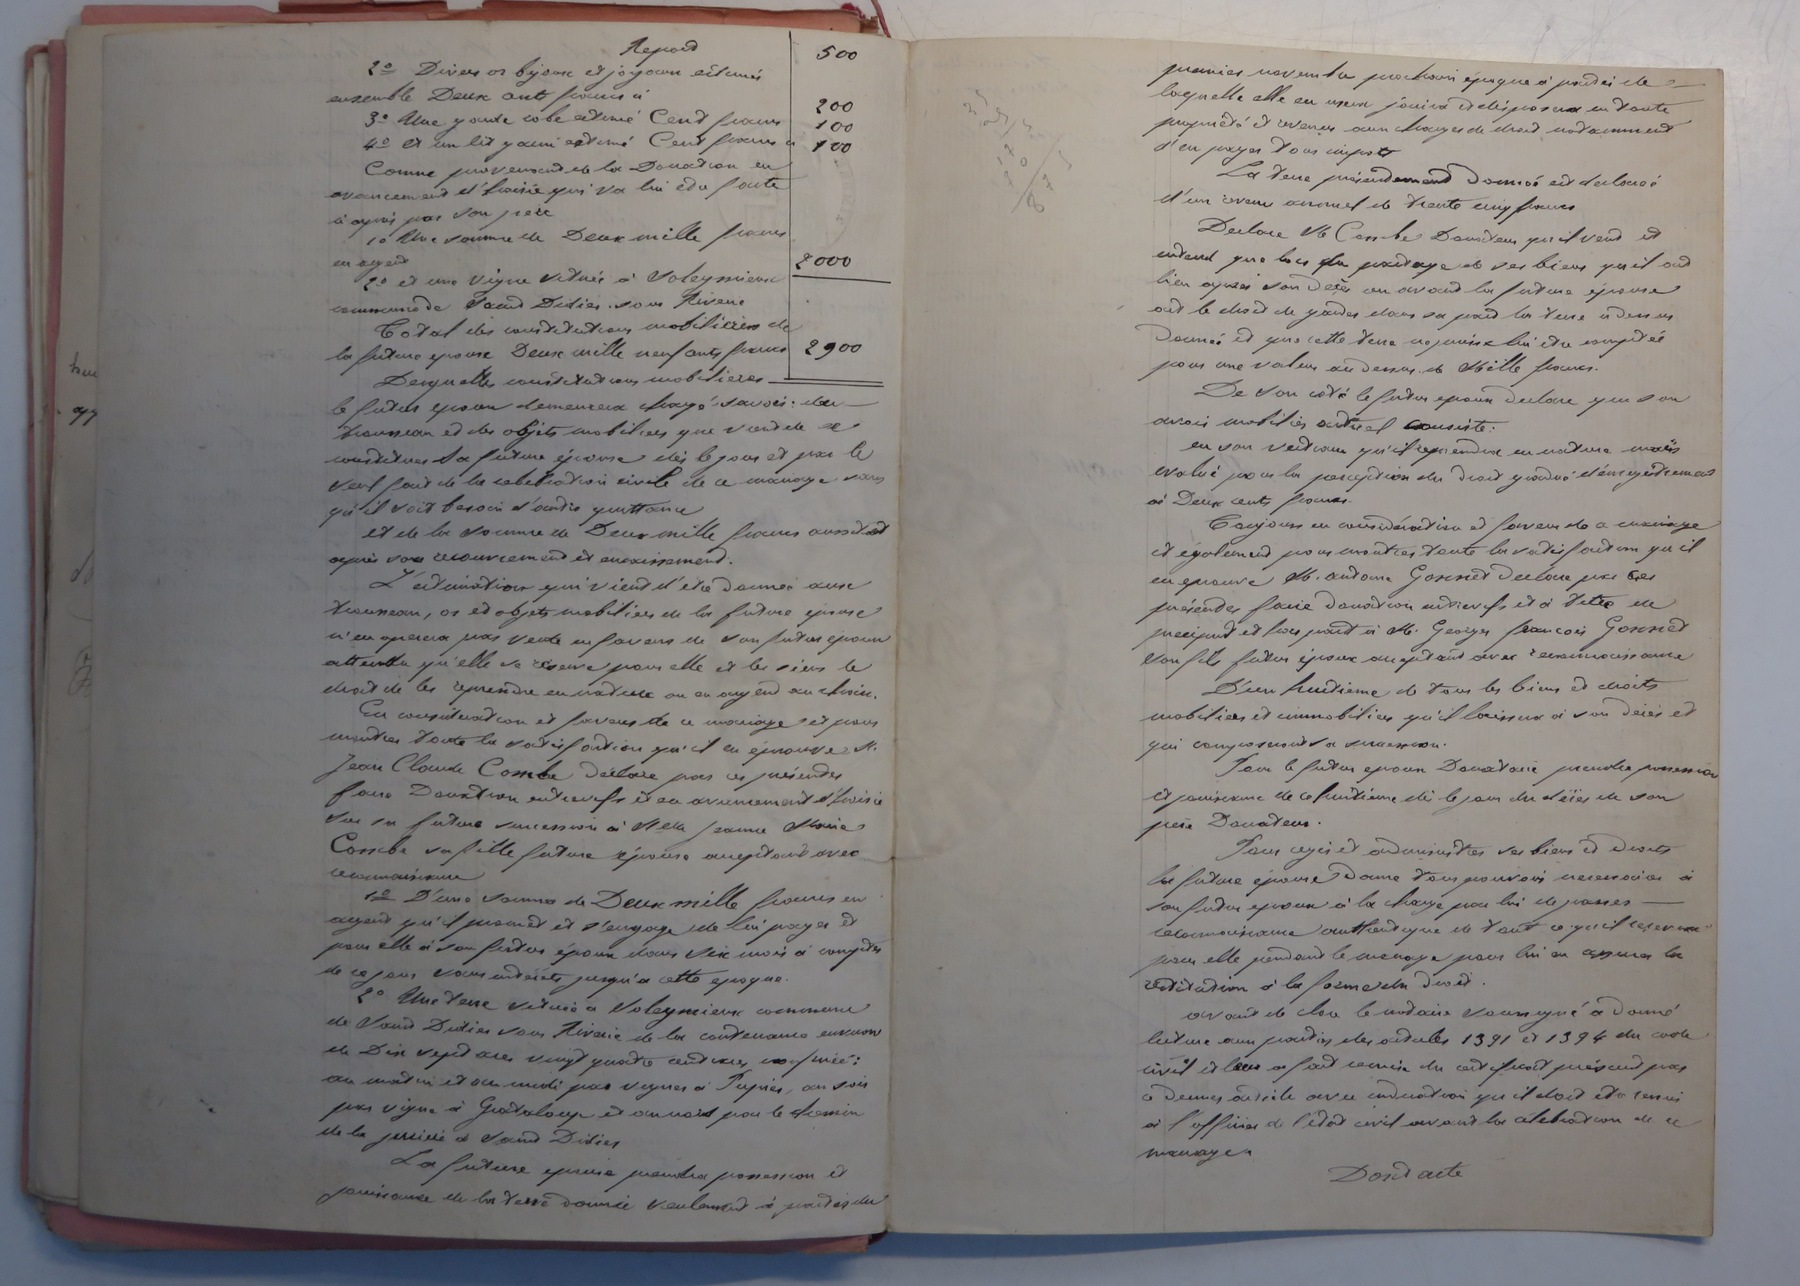 Report 500
2° Divers or bijoux et joyaux estimés
ensemble Deux cents francs ci 200
3° Une garde robe estimé Cent francs 100
4° et un lit garni estimé Cent francs ci 100
Comme provenant de la Donation en
avancement d'hoirie qui va lui etre faite
ci après par son père
1° Une somme de Deux mille francs
en argent 2000
2° et une vigne située à Soleymieux
commune de Saint Didier sous Riverie
Total des constitutions mobilières de
la future epouse Deux mille neuf cents francs 2900
Desquelles constitutions mobilieres
le futur epoux demeurera chargé savoir: du
trousseau et des objets mobiliers que vient de se
constituer la future épouse dès le jour et par le
seul fait de la celebration civile de ce mariage sans
qu'il soit besoin d'autre quittance
et de la somme de Deux mille francs aussitot
après son recouvrement et encaissement.
L'estimation qui vient d'etre donnée aux
trousseau, or et objets mobiliers de la future epouse
n'en operera pas vente en faveur de son futur epoux
attendu qu'elle se réserve pour elle et les siens le
droit de les reprendre en nature ou en argent au choix.
En consideration et faveur de ce mariage et pour
montrer toute la satisfaction qu'il en éprouve M.
Jean Claude Combe déclare par ces présentes
faire Donation entrevifs et en avancement d'hoirie
sur sa future succession à Melle Jeanne Marie
Combe sa fille future épouse acceptant avec
reconnaissance
1° D'une somme de Deux mille francs en
argent qu'il promet et s'engage de lui payer et
pour elle à son futur époux dans six mois à compter
de ce jour sans intérêts jusqu'a cette epoque.
2° Une terre située a Soleymieux commune
de Saint Didier sous Riverie de la contenance environ
de Dix sept ares vingt quatre centiares confinée:
au matin et au midi par vignes à Pupier, au soir
par vigne à Grataloup et au nord par le chemin
de la à Saint Didier
La future epouse prendra possession et
jouissance de la terre donnée seulement à partir du
premier novembre prochain époque à partir de
laquelle elle en usera jouira et disposera en toute
propriété et revenus aux charges de droit notamment
d'en payer tous impots
La terre présentement donnée est declarée
d'un revenu annuel de trente cinq francs
Declare M Combe Donateur qu'il veut et
entend que lors du partage de ses biens qu'il ait
lieu après son décès ou avant la future épouse
ait le droit de garder dans sa part la terre ci dessus
donnée et que cette terre ne puisse lui etre comptée
pour une valeur au dessus de Mille francs.
De son coté le futur epoux declare que son
avoir mobilier actuel consiste:
en son vestiaire qu'il reprendra en nature mais
évalué pour la perception du droit gradué d'enregistrement
à Deux cents francs.
Toujours en considération et faveur de ce mariage
et également pour montrer toute la satisfaction qu'il
en éprouve M. Antoine Gonnet declare par ces
présentes faire donation entrevifs et à titre de
preciput et hors part à M. Georges François Gonnet
son fils futur époux acceptant avec reconnaissance
D'un huitième de tous les biens et droits
mobiliers et immobiliers qu'il laissera à son décès et
qui composeront sa succession.
Pour le futur epoux Donataire prendre possession
et jouissance de ce huitième dès le jour du décès de son
père Donateur.
Pour regir et administrer ses biens et droits
la future épouse donne tous pouvoirs necessaires à
son futur epoux à la charge par lui de passer
reconnaissance authentique de tout ce qu'il recevra
pour elle pendant le mariage pour lui en assurer la
restitution à la forme du Droit.
avant de clore le notaire soussigné a donné
lecture aux parties des articles 1391 et 1394 du code
civil et leur a fait remise du certificat prescrit par
ce dernier article avec indication qu'il doit etre remis
à l'officier de l'état civil avant la célébration de ce
mariage.
Dont acte